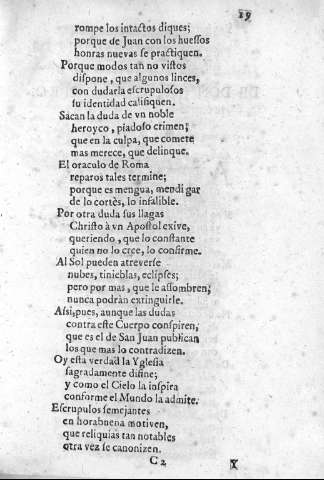 19
rompe los intactos diques;
porque de Juan con los huessos
honras nuevas se practiquen.
Porque modos tan no vistos
dispone, que algunos linces,
con dudarla escrupulosos
su identidad califiquen.
Sacan la duda de vn noble
heroyco, piadoso crimen;
que en la culpa, que comete
mas merece, que delinque.
El oraculo de Roma
reparos tales termine;
porque es mengua, mendigar
de lo cortès, lo infalible.
Por otra duda sus llagas
Christo à vn Apostol exive,
queriendo, que lo constante
quien no lo cree, lo confirme.
Al Sol pueden atreverse
nubes, tinieblas, eclipses;
pero por mas, que le assombren;
nunca podràn extinguirle.
Assi, pues, aunque las dudas
contra este Cuerpo conspiren,
que es el de San Juan publican
los que mas lo contradizen.
Oy esta verdad la Yglesia
sagradamente difine;
y como el Cielo la inspira
conforme el Mundo la admite.
Escrupulos semejantes
en horabuena motiven,
que reliquias tan notables
otra vez se canonizen.
C 2 Y